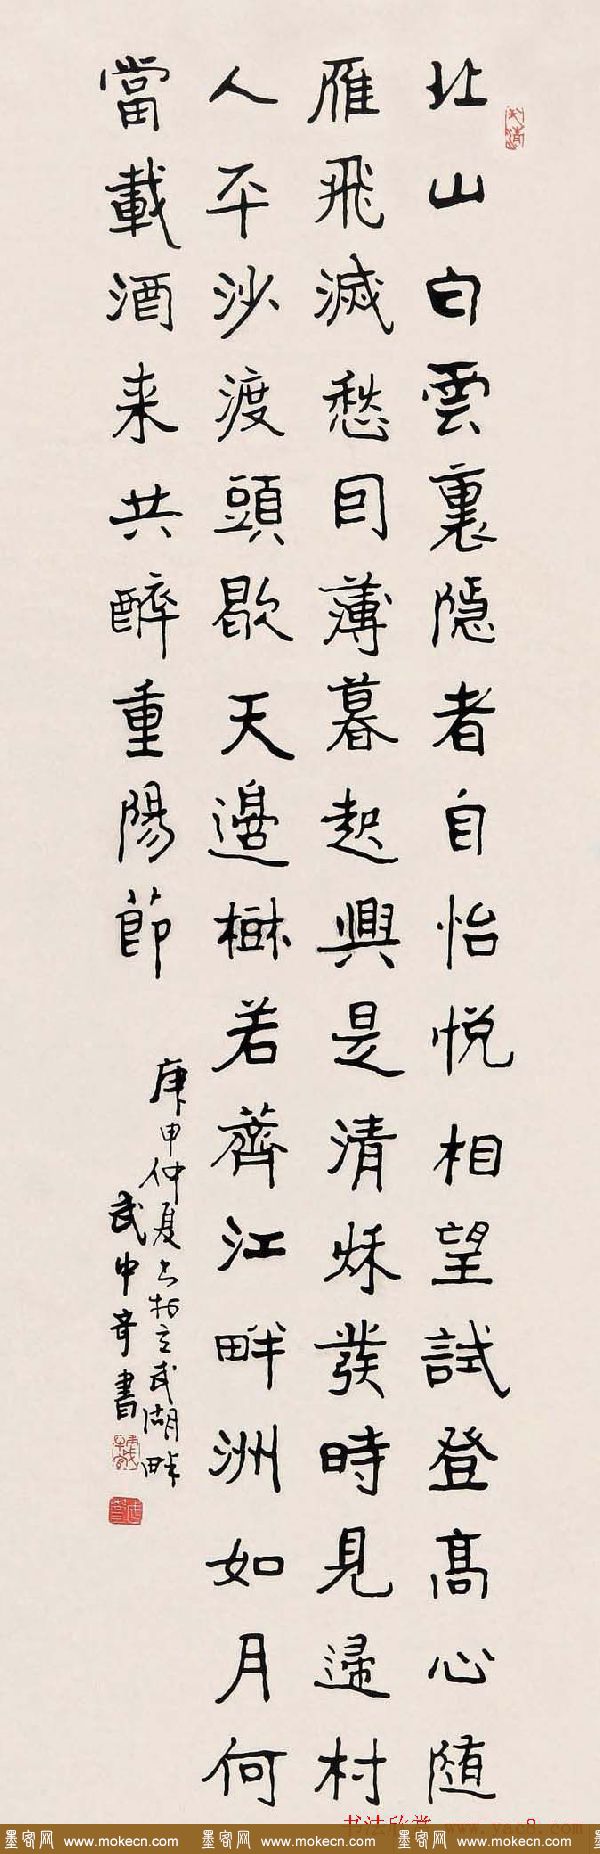 北山白雲裏隱者自怡悅相望試登高心隨
雁飛滅愁因薄暮起興是清秋發時見歸村
人平沙渡頭歇天邊樹若薺江畔洲如月何
當載酒来共醉重陽節
庚申仲夏书於玄武湖畔
武中奇書
书法欣赏 www.yac8.com
墨客网 www.mokecn.com 墨客网 www.mokecn.com 墨客网 www.mokecn.com